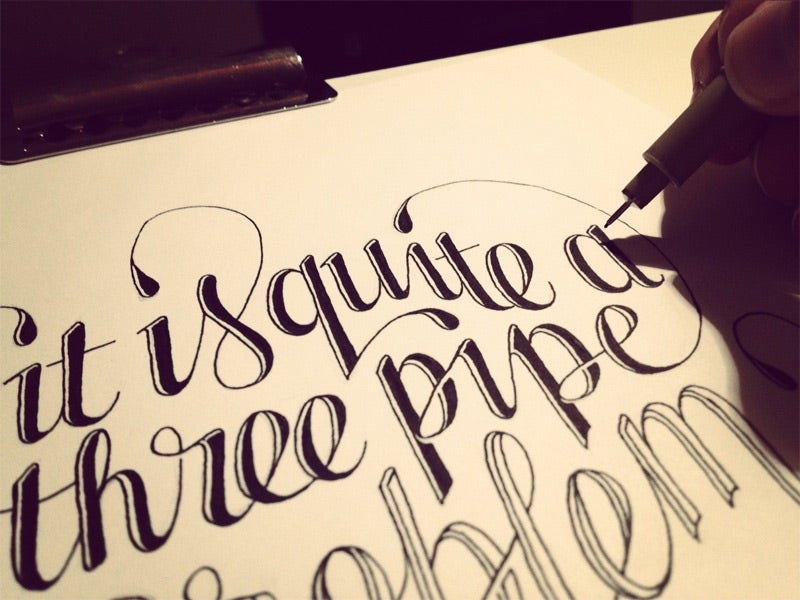 it is quite a
three pipe
problem